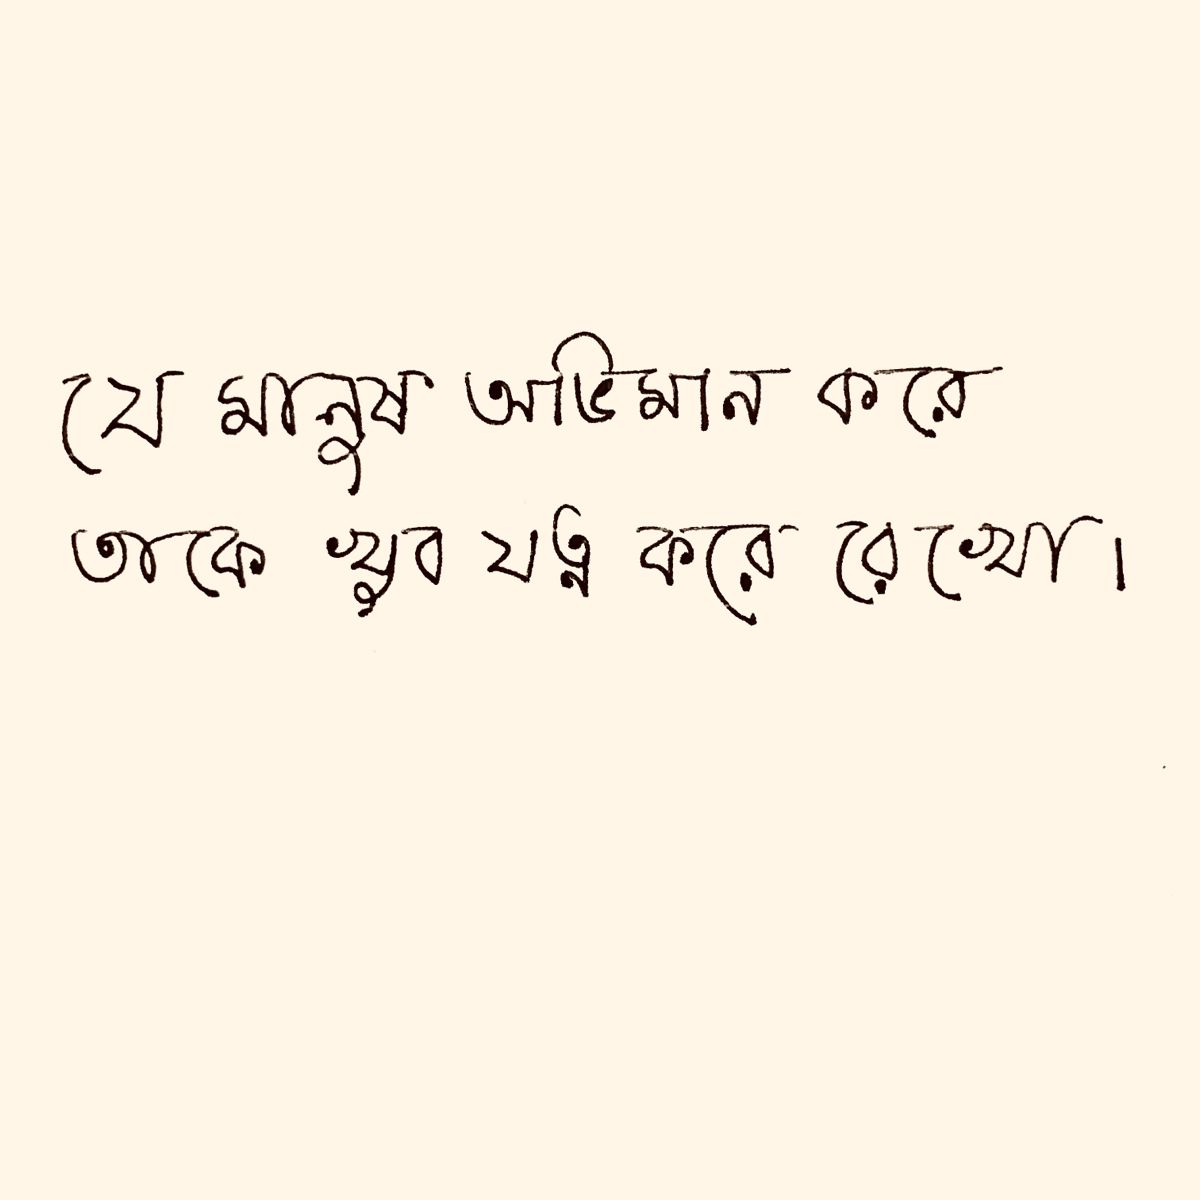 যে মানুষ অভিমান করে
তাকে খুব যত্ন করে রেখো।